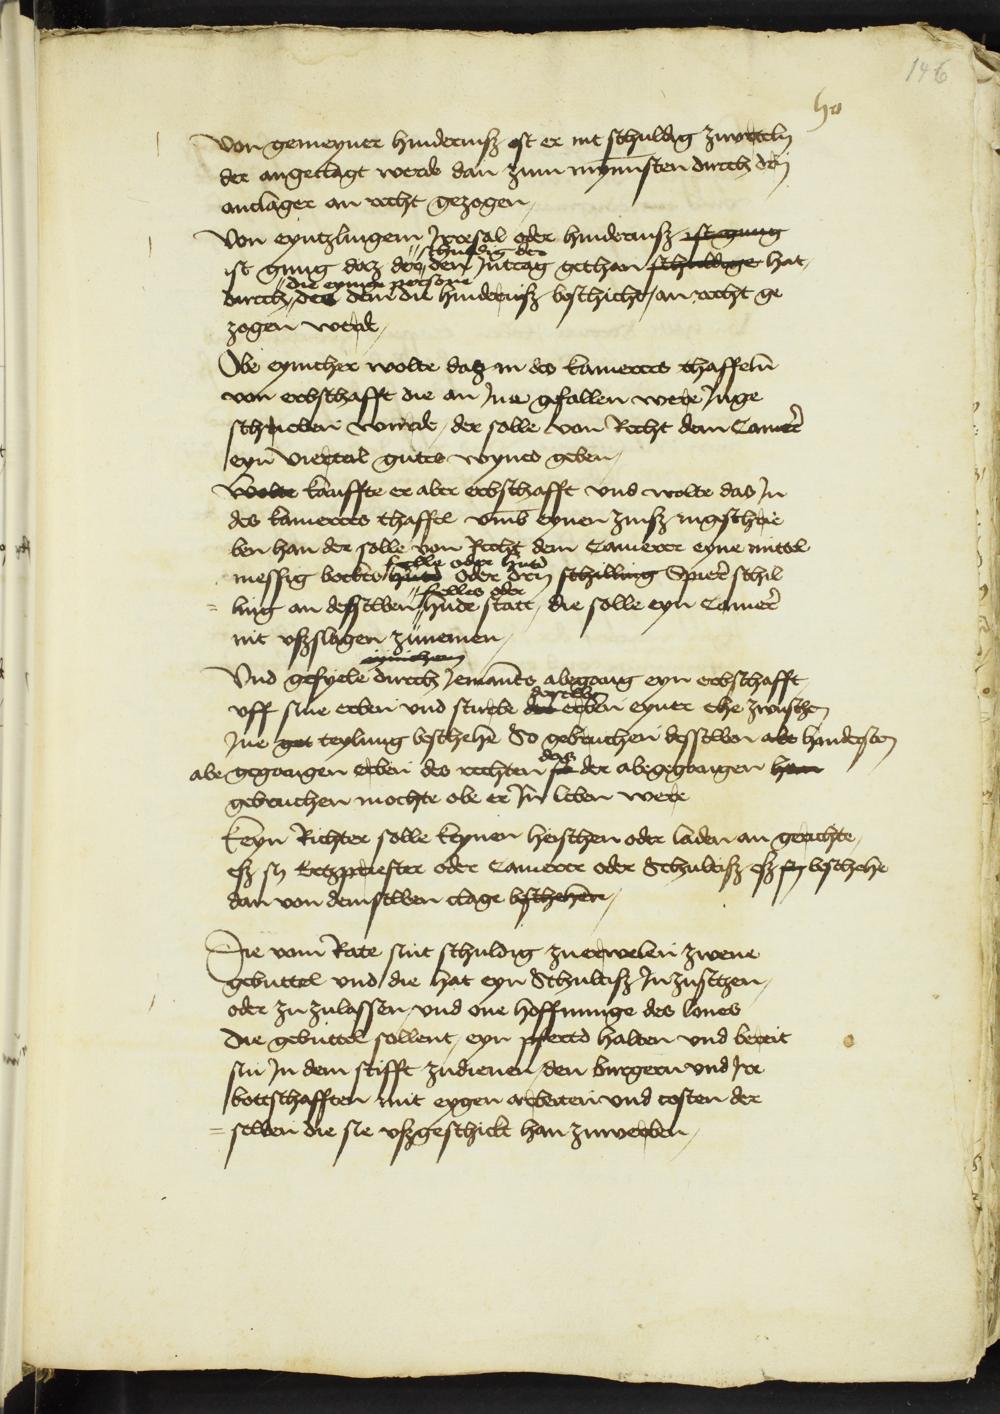 146
Von gemeyner hindernisz ist er nit schuldig zuwetteln
der angeclagt werde dan zum mynnsten durch den
anclager an recht gezogen,
Von eyntzlingem Jrresal oder hindernisz ist gnug
schuldig der
ist gnug daz der den Jntrag gethan schuldige hat,
die eynige persone
durch des dem die hindernisz beschicht, an recht ge
zogen werde,
Obe eynicher wolte daz in des kamerers thaffeln
von erbschafft die an Jne gefallen were Jnge
schrieben wurde, der solle von Recht dem Camerer
eyn viertail gutes wynes geben,
Wolte kauffte er aber erbschafft vnd wolte das Jn
des kamerers thaffel vmb eynen zinsz ingeschrie
ben han der solle von Recht dem Camerer eyne mittel
felle oder hute
messig bockes hute oder dry schilling Spirer schil
felles oder
ling an desselben hude statt, die solle eyn Camerer
nit vszslagen zunemen,
eynichem
Vnd gefyele durch Jemants abegang eyn erbschafft,
vff sine erben vnd sturbe der erben eyner ehe zwuschen
Jne get teylung beschehe So gebruchen desselben abe hindersten
abe gegangen erben des rechten das der abegegangen han
gebruchen mochte obe er Jm leben were
Keyn Richter solle keynen heischen oder laden an gerichte,
esz sy Ertzpriester oder Camerer oder Schultisz esz sy beschehe
dan von demselben clage beschehen,
Die vom Rate sint schuldig zuerwelen zwene
gebuttel vnd die hat eyn Schultisz Jnzusetzen,
oder zu zulassen, vnd one hoffnunge des lones
Die gebuttel sollent, eyn pferd halten vnd bereit
sin Jn dem stifft zudienen, den burgern vnd Jre
bottschafften mit eygen arbeiten vnd costen der
selben die sie vszgeschickt han zuwerben,